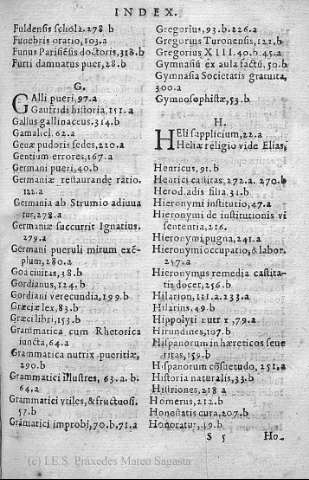 INDEX.
Fuldensis schola.278 b
Funebris oratio,103.a
Funus Parisiẽsis doctoris,318.b
Furti damnatus puer,28.b
G.
GAlli pueri,97.a
Gaufridi historia,151.a
Gallus gallinaceus,314.b
Gamaliel,62.a
Genæ pudoris sedes,210.a
Gentium errores,167.a
Germani pueri,40.b
Germaniæ restaurandę ratio.
112.a
Germania ab Strumio adiuua
tur,278.a
Germaniæ succurrit Ignatius.
279.a
Germani pueruli mirum exẽ-
plum,280.a
Goa ciuitas,38.b
Gordianus,124.b
Gordiani verecundia,199.b
Græciæ lex,83.b
Græci libri,153.b
Grammatica cum Rhetorica
iuncta,64.a
Grammatica nutrix pueritiæ,
290.b
Grammatici illustres, 63.a. b.
64.a
Grammatici vtiles,& fructuosi.
57.b
Gramatici improbi,70.b,71.a
Gregorius,93.b.226.a
Gregorius Turonensis,122.b
Gregorius XIII.40.b.45.a
Gymnasiũ ex aula factũ,50.b
Gymnasia Societatis gratuita,
300.a
Gymnosophistæ,53.b
H.
HEli supplicium,22.a
Heliæ religio vide Elias,
Henricus,91.b
Henrici castitas,272.a. 270.b
Herod adis filia.31.b
Hieronymi institutio,47.a
Hieronymi de institutionis vi
sententia,216.
Hieronymi pugna,241.a
Hieronymi occupatio,& labor.
247.a
Hieronymus remedia castita-
tis docet,256.b
Hilarion,111.a.233.a
Hilarius,49.b
Hippolyti
,79.a
Hirundines,107.b
Hispanorum in hæreticos seue
ritas,159.b
Hispanorum cõsuetudo, 251.a
Historia naturalis,33.b
Histriones,218 a
Homerus,212.b
Honestatis cura,207.b
Honoratur,49.b
S 5 Ho-
(c) I.E.S. Práxedes Mateo Sagasta